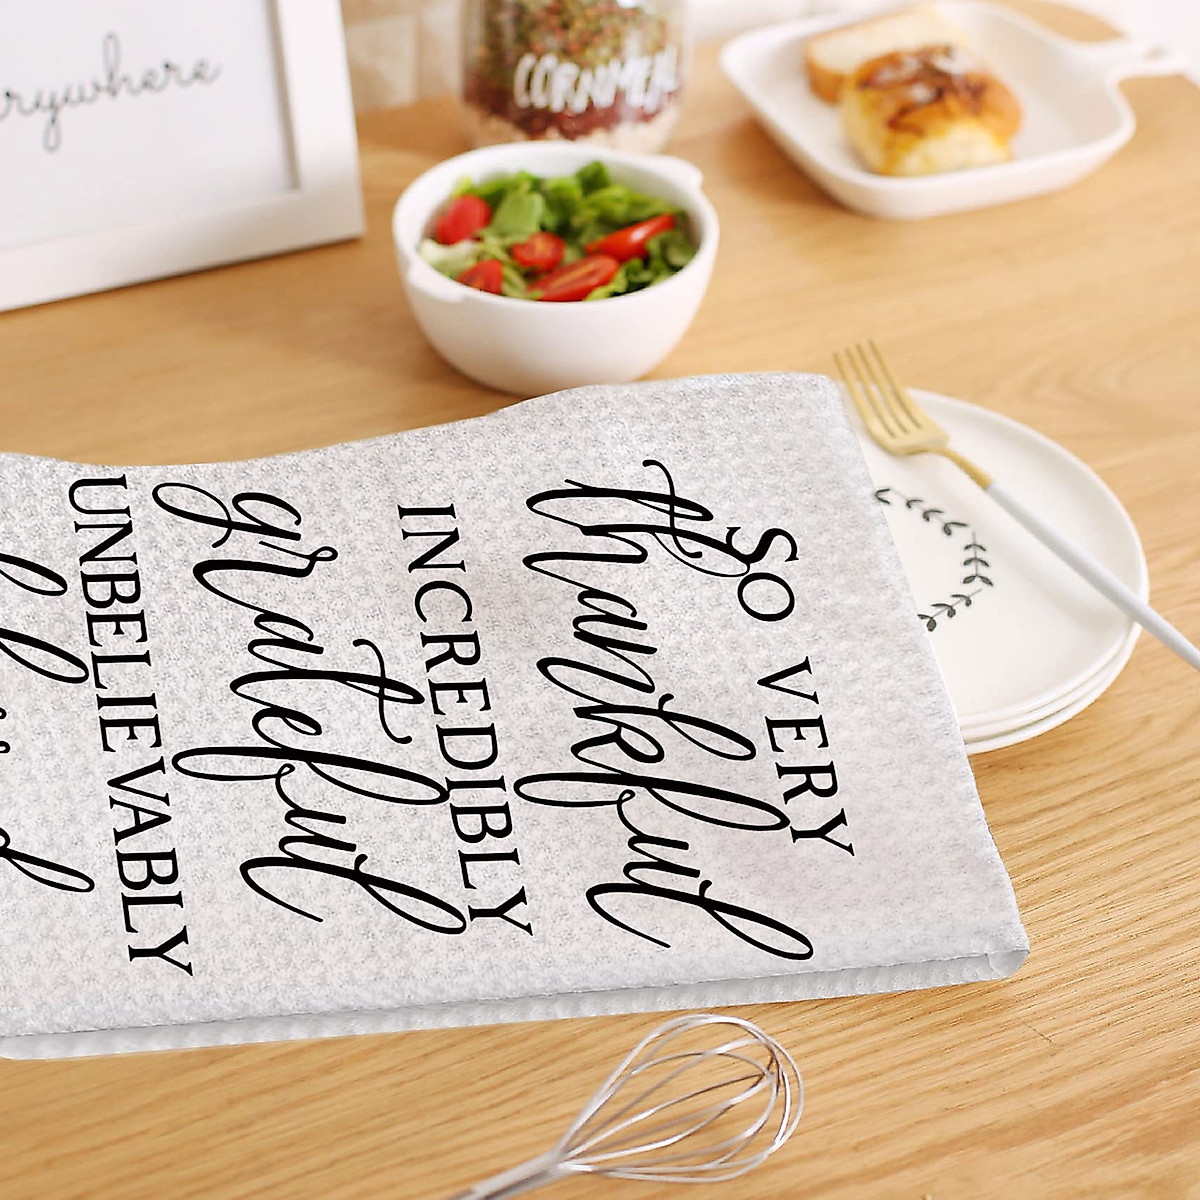 CORNMEAL
SO VERY
thankful
INCREDIBLY
grateful
UNBELIEVABLY